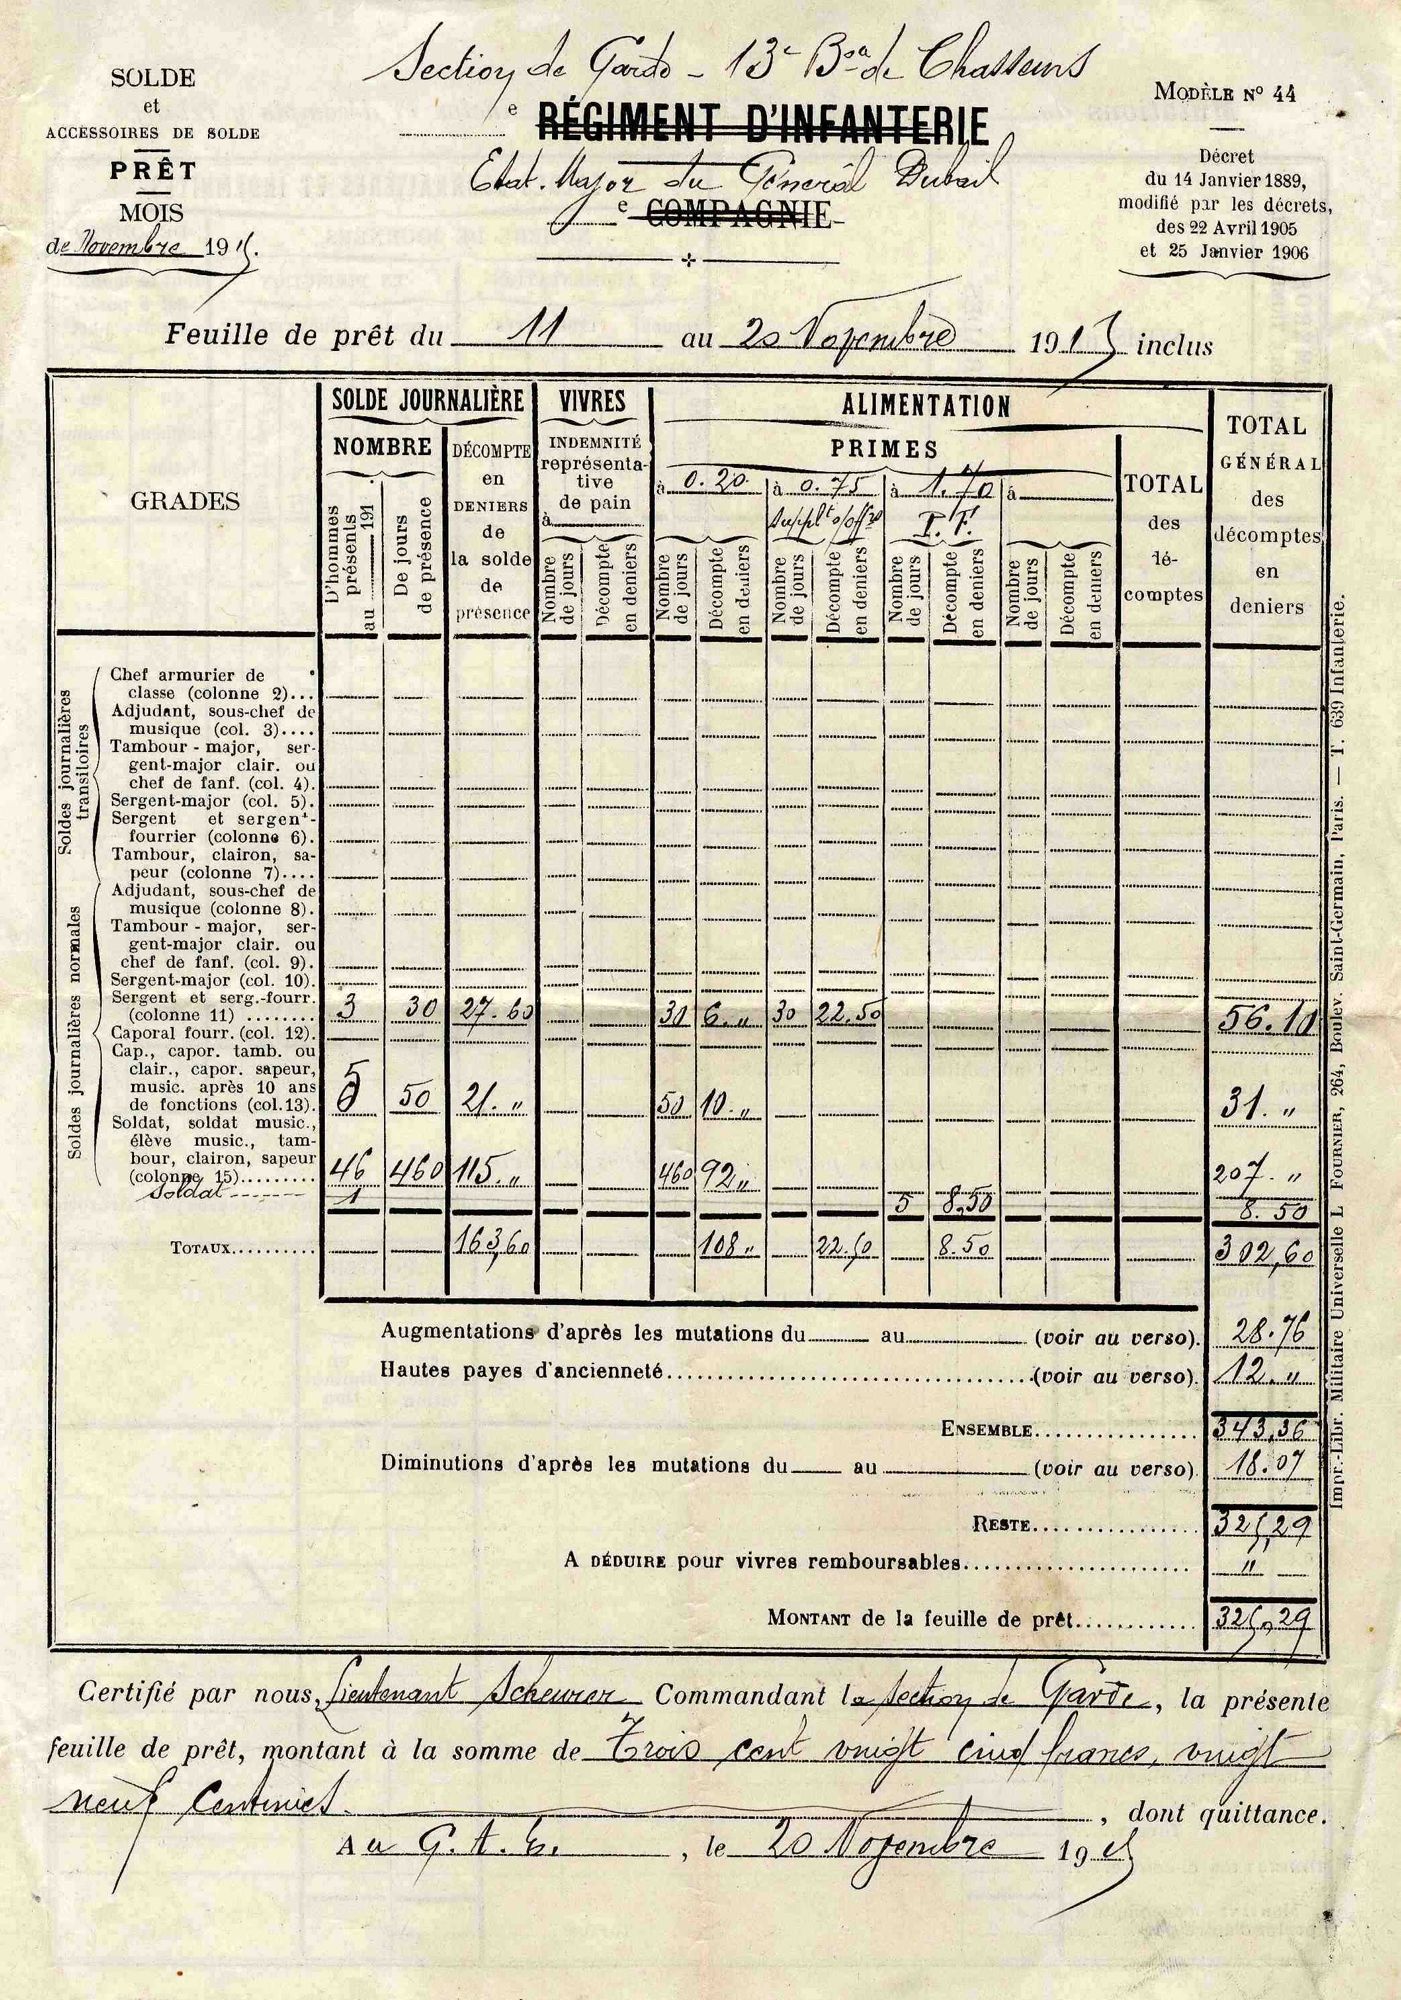 Section de Garde - 13e Bon de Chasseurs
SOLDE
et
ACCESSOIRES DE SOLDE
PRÊT
MOIS
de Novembre 1915.
e RÉGIMENT D'INFANTERIE
Etat-Major du Général Dubail
e COMPAGNIE
MODÈLE No 44
Décret
du 14 Janvier 1889,
modifié par les décrets,
des 22 Avril 1905
et 25 Janvier 1906
Feuille de prêt du 11 au 20 Novembre 1915 inclus
GRADES
SOLDE JOURNALIÈRE
NOMBRE
D'hommes présents au 191
De jours de présence
DÉCOMPTE
en
DENIERS
de
la solde
de
présence
VIVRES
INDEMNITÉ
représenta-
tive
de pain
à
Nombre de jours
Décompte en deniers
ALIMENTATION
PRIMES
à 0.20 à 0.75 à 1.70 à
Supplt s/offrs P.F.
Nombre de jours
Décompte en deniers
Nombre de jours
Décompte en deniers
Nombre de jours
Décompte en deniers
Nombre de jours
Décompte en deniers
TOTAL
des
dé-
comptes
TOTAL
GÉNÉRAL
des
décomptes
en
deniers
Soldes journalières transitoires
Chef armurier de
classe (colonne 2)...
Adjudant, sous-chef de
musique (col. 3)....
Tambour-major, ser-
gent-major clair. ou
chef de fanf. (col. 4).
Sergent-major (col. 5).
Sergent et sergent-
fourrier (colonne 6).
Tambour, clairon, sa-
peur (colonne 7)....
Soldes journalières normales
Adjudant, sous-chef de
musique (colonne 8).
Tambour-major, ser-
gent-major clair. ou
chef de fanf. (col. 9).
Sergent-major (col. 10).
Sergent et serg.-fourr.
(colonne 11) ........ 3 30 27.60 30 6.„ 30 22.50 56.10
Caporal fourr. (col. 12).
Cap., capor. tamb. ou
clair., capor. sapeur,
music. après 10 ans
de fonctions (col.13). 5 50 21.„ 50 10.„ 31.„
Soldat, soldat music.,
élève music., tam-
bour, clairon, sapeur
(colonne 15)......... 46 460 115.„ 460 92„ 207.„
Soldat 1 5 8,50 8.50
TOTAUX.......... 163,60 108„ 22.50 8.50 302,60
Augmentations d'après les mutations du au (voir au verso). 28.76
Hautes payes d'ancienneté.....(voir au verso). 12.„
ENSEMBLE................ 343,36
Diminutions d'après les mutations du au (voir au verso) 18.07
RESTE................ 325,29
A DÉDUIRE pour vivres remboursables...................... „
MONTANT de la feuille de prêt............ 325,29
Impr.-Libr. Militaire Universelle L FOURNIER, 264, Boulev. Saint-Germain, Paris. — T. 639 Infanterie.
Certifié par nous, Lieutenant Scheurer Commandant la section de Garde, la présente
feuille de prêt, montant à la somme de Trois cent vingt cinq francs, vingt
neuf centimes. , dont quittance.
A u G.A.E. , le 20 Novembre 1915